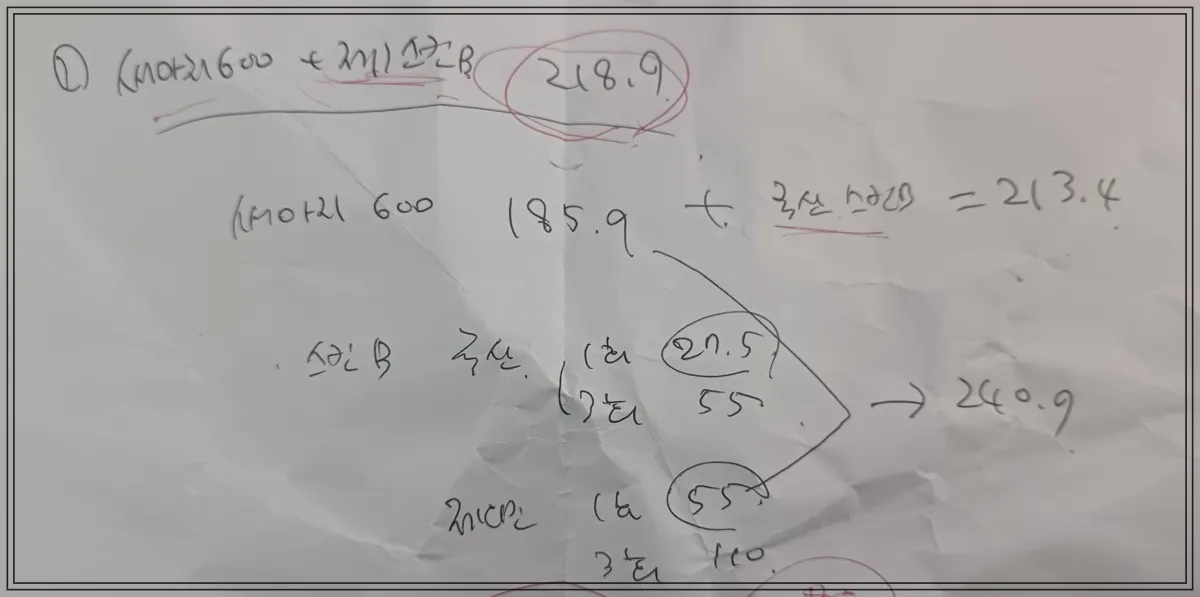 ① 써마지600 + 제1스킨B 218.9
써마지 600 185.9 + 국산 스킨B = 213.4
스킨B 국산 1회 27.5
3회 55 → 240.9
1회 55
3회 110